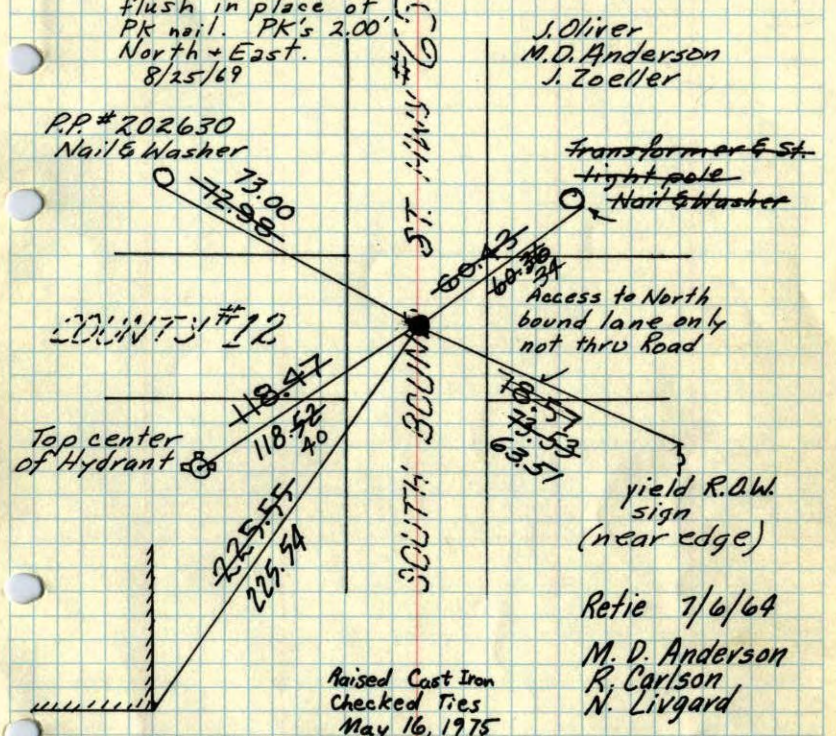 flush in place of
PK nail. PK's 2.00'
North & East.
8/25/69
J. Oliver
M.D. Anderson
J. Zoeller
ST. HWY #65
P.P. #202630
Nail & Washer
73.00
72.98
Transformer & St.
light pole
Nail & Washer
60.43
60.36
34
Access to North
bound lane only
not thru Road
COUNTY #12
118.47
118.52
40
Top center
of Hydrant
78.57
73.53
63.51
SOUTH BOUND
yield R.O.W.
sign
(near edge)
225.55
225.54
Retie 7/6/64
M. D. Anderson
R. Carlson
N. Livgard
Raised Cast Iron
Checked Ties
May 16, 1975